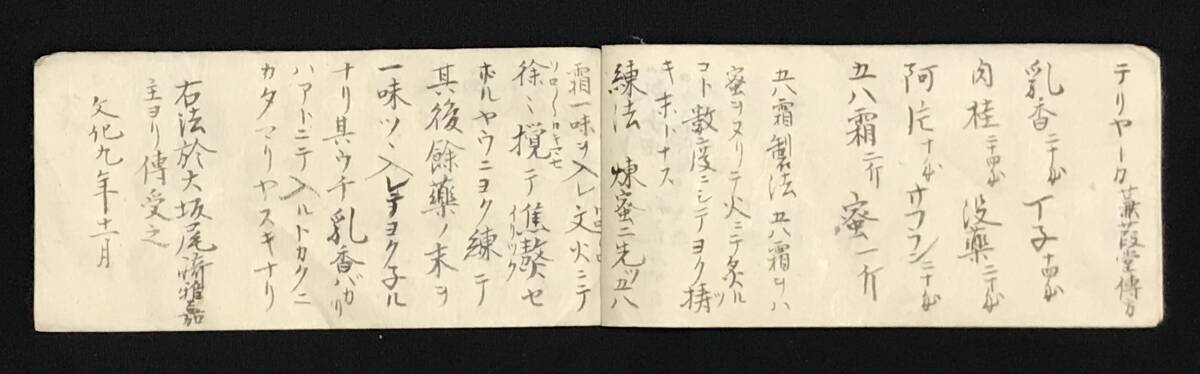 テリヤーカ 蒹葭堂傳方
乳香二十匁 丁子十四匁
肉桂二十四匁 没藥二十匁
阿片十匁 サフラン二十匁
五八霜二斤 蜜一斤
五八霜製法 五八霜ヲハ
蜜ヲヌリテ火ニテ炙ル
コト數度ニシテヨク擣ツ
キ末トナス
練法 煉蜜ニ先ツ五八
霜一味ヲ入レ文火ニテ
徐々ニ攪テ焦熬セ
ホルヤウニヨク練テ
其後餘藥ノ末ヲ
一味ツヽ入レテヨク子ル
ナリ其ウチ乳香バカリ
ハアトニテ入ルトカクニ
カタマリヤスキナリ
右法於大坂尾崎雅嘉
主ヨリ傳受之
文化九年十一月